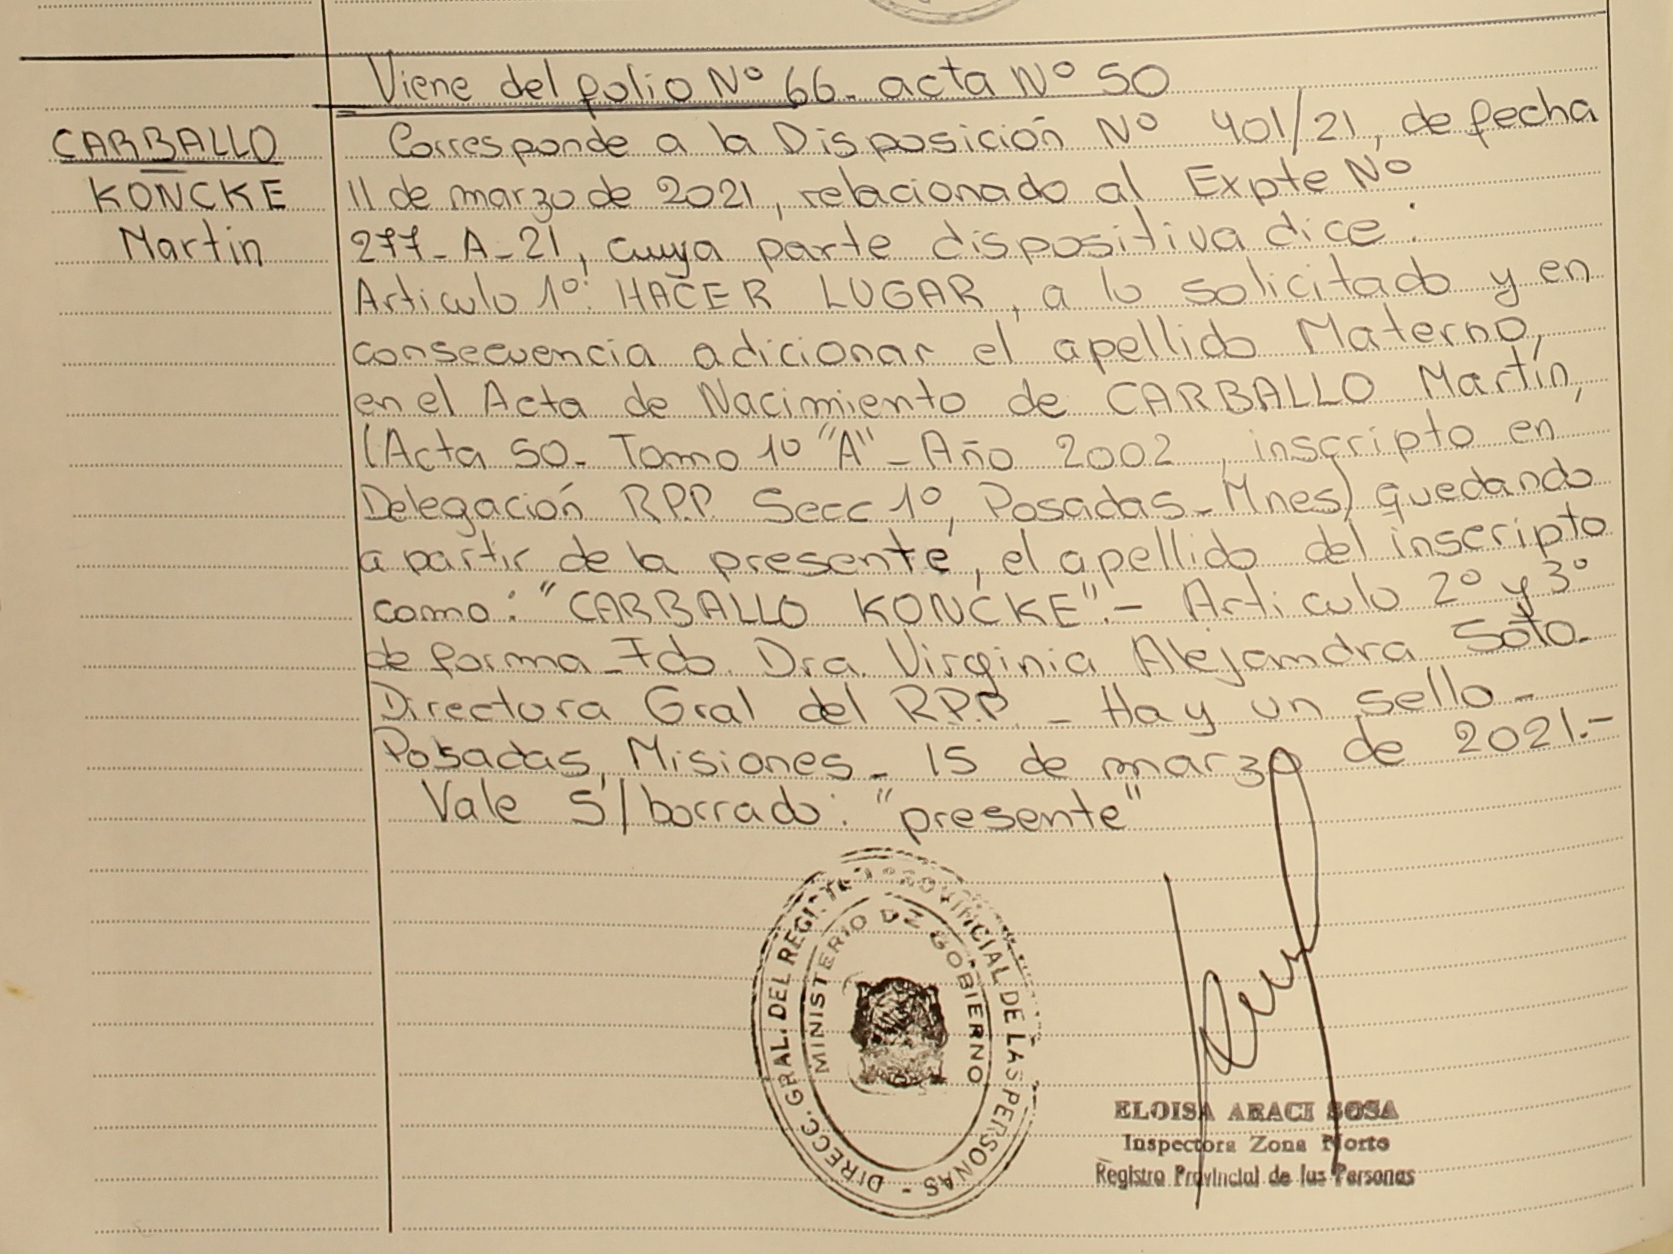 Viene del folio Nº 66. acta Nº 50
CARBALLO
KONCKE
Martin
Corresponde a la Disposición Nº 401/21, de fecha
11 de marzo de 2021, relacionado al Expte Nº
277-A-21, cuya parte dispositiva dice:
Articulo 1º: HACER LUGAR, a lo solicitado y en
consecuencia adicionar el apellido Materno,
en el Acta de Nacimiento de CARBALLO Martín,
(Acta 50- Tomo 1º "A"- Año 2002, inscripto en
Delegación R.P.P. Secc 1º, Posadas-Mnes) quedando
a partir de la presente, el apellido del inscripto
como: "CARBALLO KONCKE".- Articulo 2º y 3º
de forma-Fdo. Dra. Virginia Alejandra Soto-
Directora Gral del R.P.P. - Hay un sello-
Posadas, Misiones- 15 de marzo de 2021.-
Vale S/borrado: "presente"
DIRECC. GRAL. DEL REGISTRO PROVINCIAL DE LAS PERSONAS -
MINISTERIO DE GOBIERNO
ELOISA ARACI SOSA
Inspectora Zona Norte
Registro Provincial de las Personas